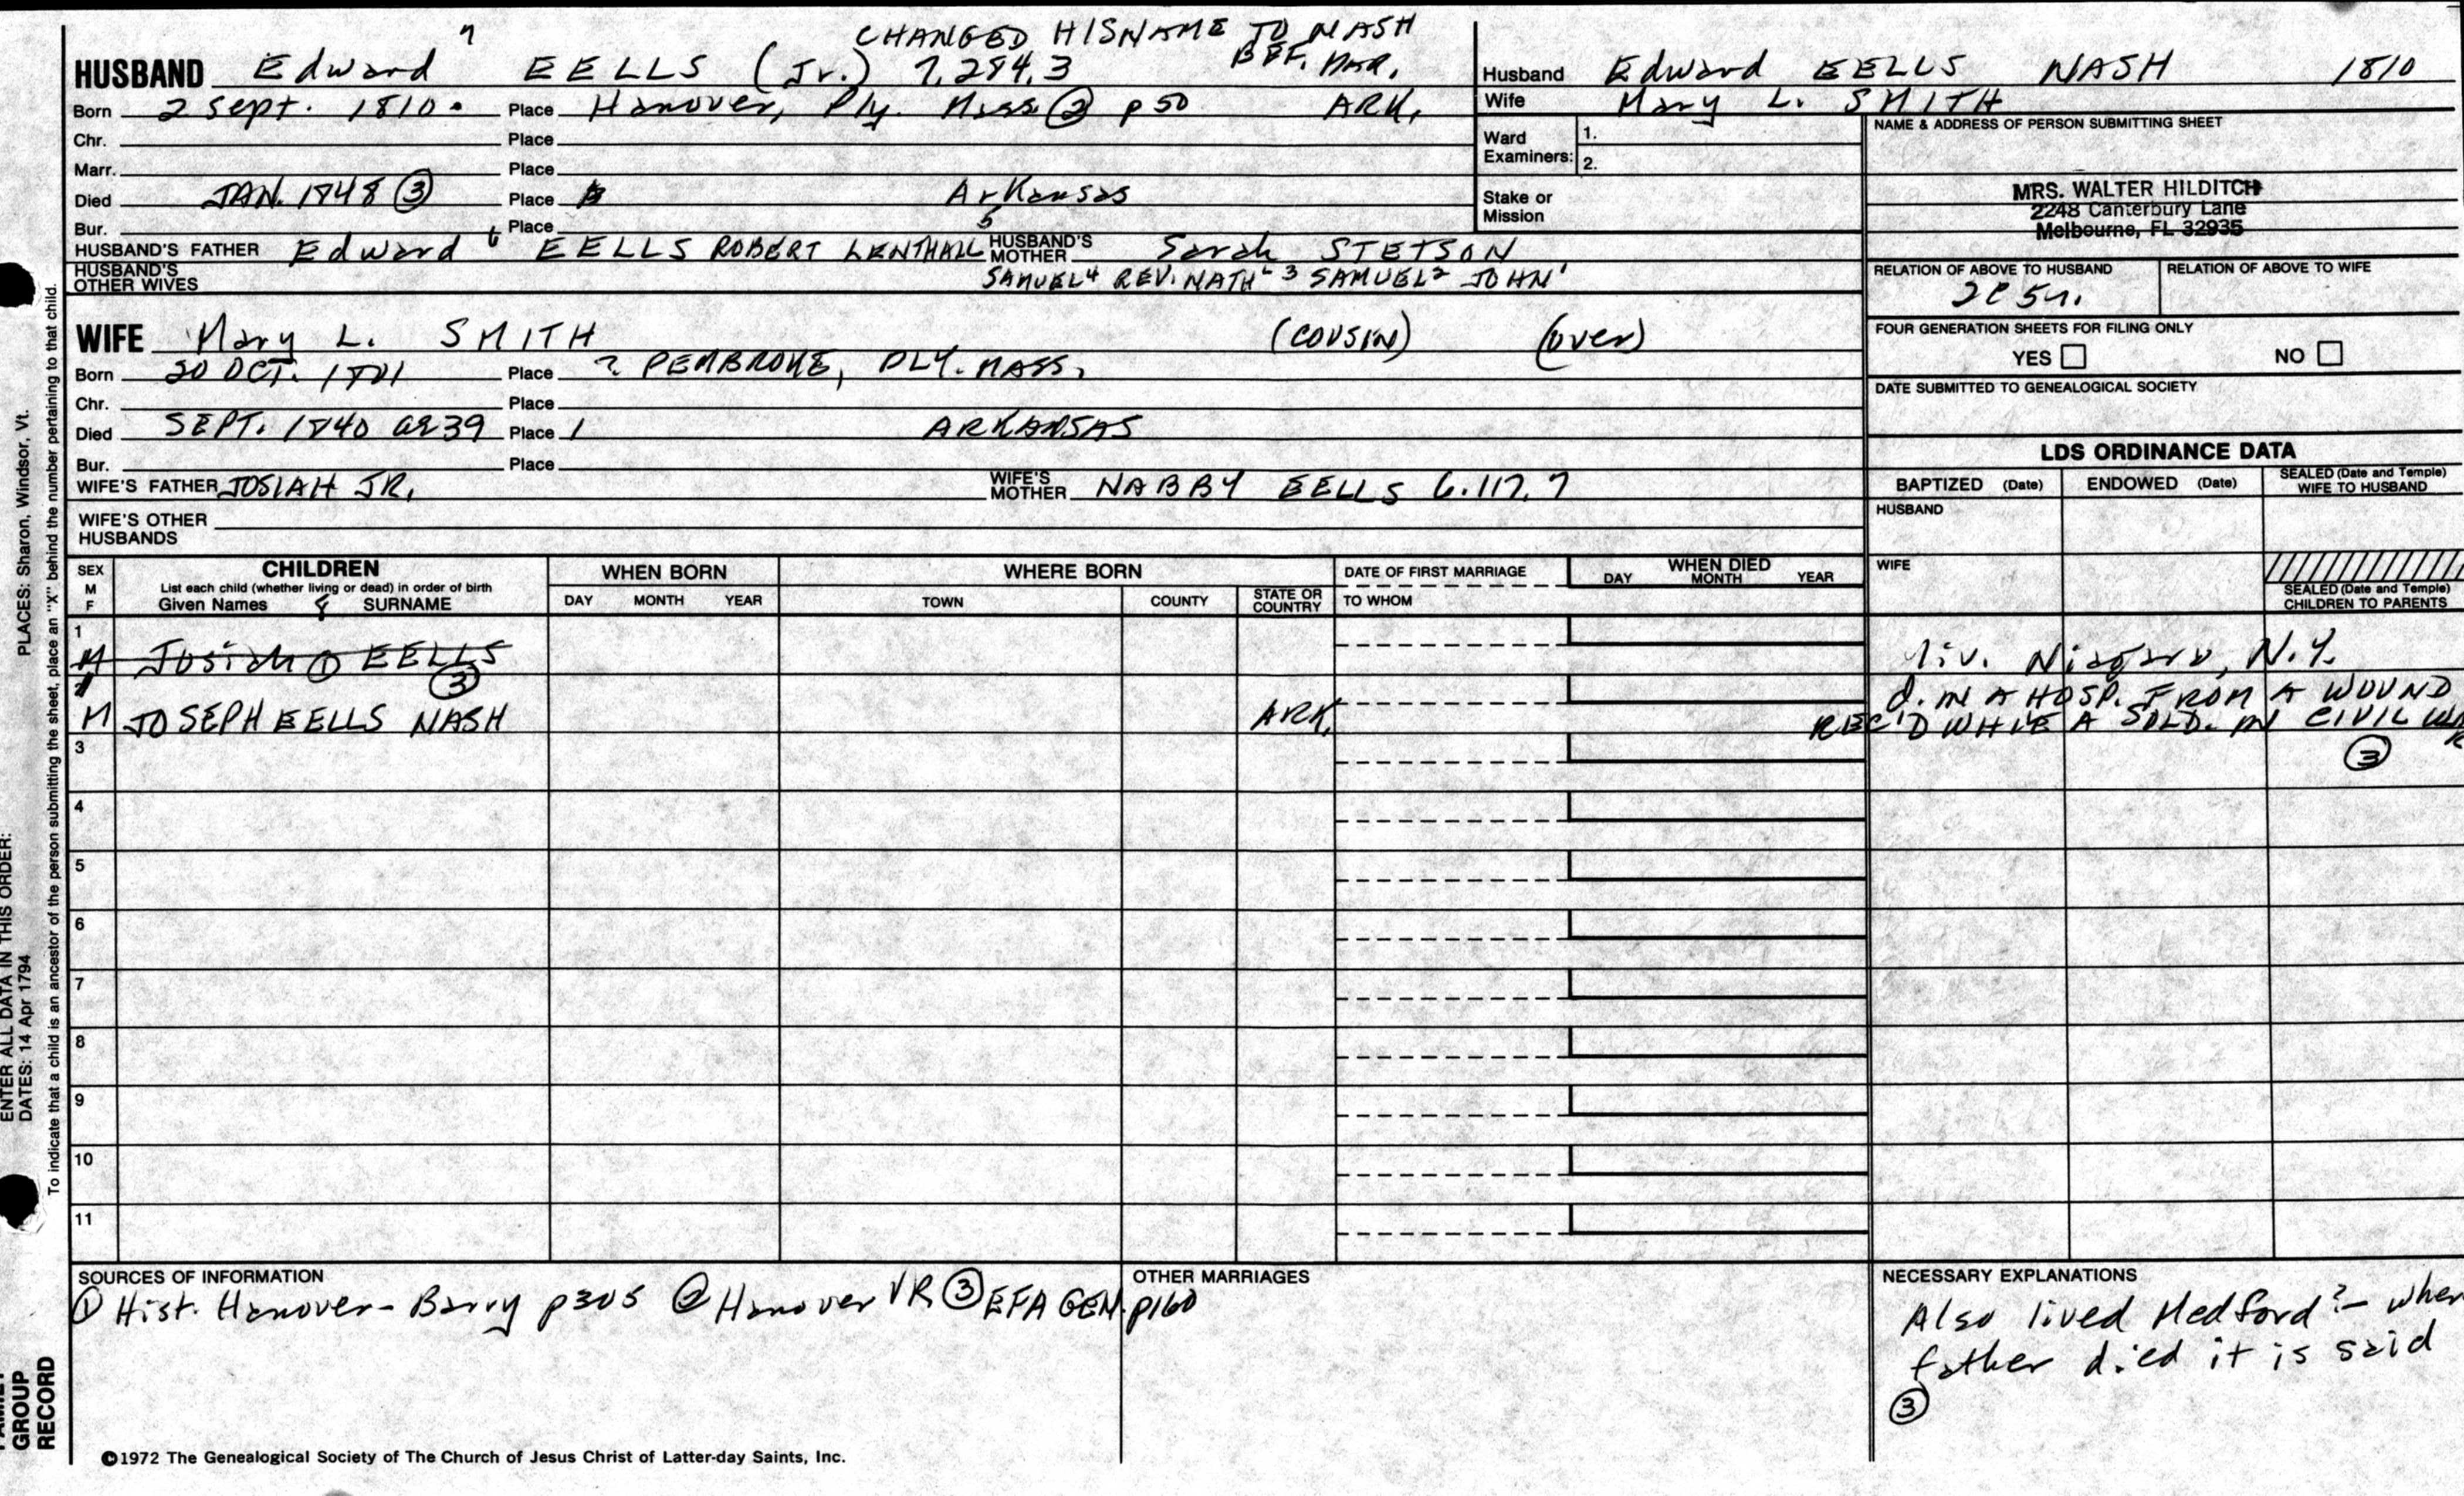 CHANGED HIS NAME TO NASH
BEF. MAR.
HUSBAND Edward 7 EELLS (Jr.) 7.284.3
Born 2 Sept. 1810. Place Hanover, Ply. Mass ② p 50 ARK.
Chr. Place
Marr. Place
Died JAN. 1848 ③ Place Arkansas
Bur. Place
HUSBAND'S FATHER Edward 6 EELLS ROBERT LENTHALL 5 HUSBAND'S MOTHER Sarah STETSON
HUSBAND'S OTHER WIVES SAMUEL 4 REV. NATHL 3 SAMUEL 2 JOHN 1
WIFE Mary L. SMITH (COUSIN) (over)
Born 20 OCT. 1801 Place ? PEMBROKE, PLY. MASS.
Chr. Place
Died SEPT. 1840 ae 39 Place 1 ARKANSAS
Bur. Place
WIFE'S FATHER JOSIAH JR. WIFE'S MOTHER NABBY EELLS 6.117.7
WIFE'S OTHER HUSBANDS
Husband Edward EELLS NASH 1810
Wife Mary L. SMITH
Ward Examiners: 1.
2.
Stake or Mission
NAME & ADDRESS OF PERSON SUBMITTING SHEET
MRS. WALTER HILDITCH
2248 Canterbury Lane
Melbourne, FL 32935
RELATION OF ABOVE TO HUSBAND RELATION OF ABOVE TO WIFE
2C 5r.
FOUR GENERATION SHEETS FOR FILING ONLY
YES NO
DATE SUBMITTED TO GENEALOGICAL SOCIETY
LDS ORDINANCE DATA
BAPTIZED (Date) ENDOWED (Date) SEALED (Date and Temple) WIFE TO HUSBAND
HUSBAND
WIFE
SEALED (Date and Temple) CHILDREN TO PARENTS
SEX M F CHILDREN
List each child (whether living or dead) in order of birth
Given Names SURNAME
WHEN BORN
DAY MONTH YEAR
WHERE BORN
TOWN COUNTY STATE OR COUNTRY
DATE OF FIRST MARRIAGE
TO WHOM
WHEN DIED
DAY MONTH YEAR
1
M Josiah ① EELLS liv. Niagara, N.Y.
2 ③ d. IN A HOSP. FROM A WOUND
M JOSEPH EELLS NASH ARK. REC'D WHILE A SOLD. IN CIVIL WAR
3 ③
4
5
6
7
8
9
10
11
SOURCES OF INFORMATION
① Hist. Hanover - Barry p305 ② Hanover VR ③ EFA GEN. p160
OTHER MARRIAGES
NECESSARY EXPLANATIONS
Also lived Medford? - when
father died it is said
③
©1972 The Genealogical Society of The Church of Jesus Christ of Latter-day Saints, Inc.
ENTER ALL DATA IN THIS ORDER:
DATES: 14 Apr 1794 PLACES: Sharon, Windsor, Vt.
To indicate that a child is an ancestor of the person submitting the sheet, place an "X" behind the number pertaining to that child.
FAMILY
GROUP
RECORD